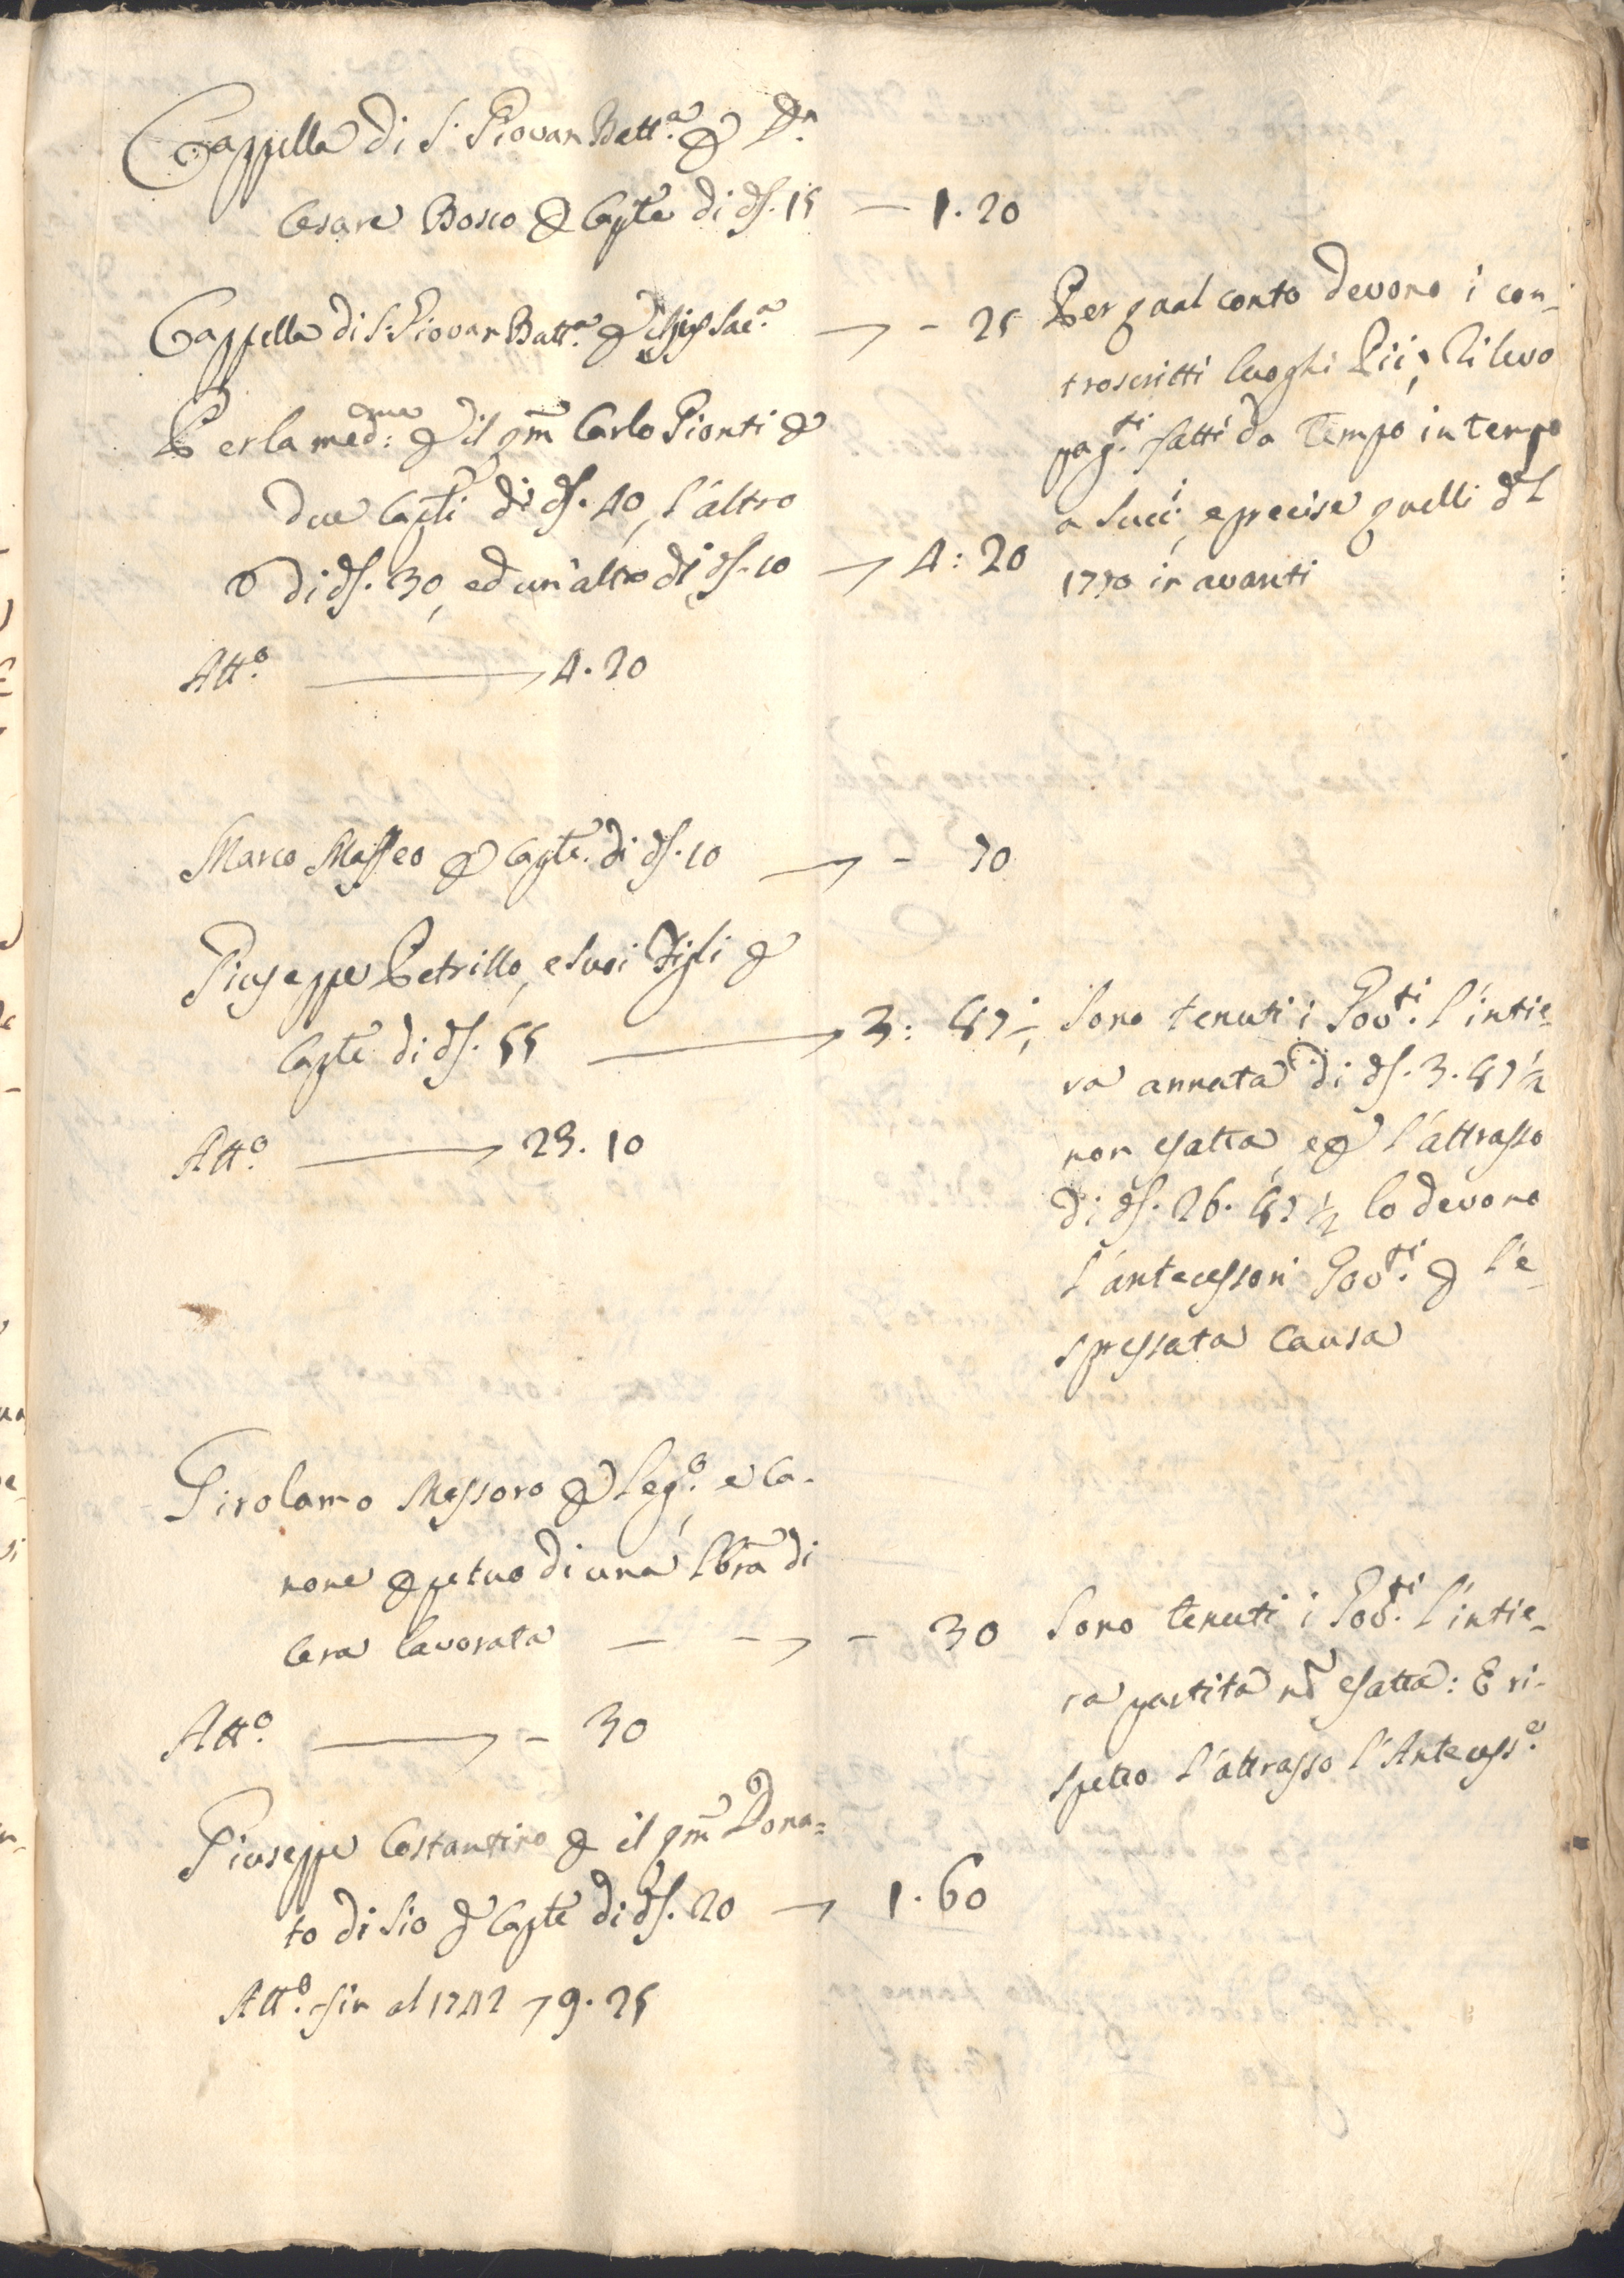 Cappella di S. Giovan Batt.a p D.n
Cesare Bosco p Cap̃le di d̃. 15 — 1. 20
Cappella di S. Giovan Batt.a p Sac.a → - 25
Per la med:ma p il qm̃ Carlo Gionti p
due Cap̃li di d̃. 40, l'altro
di d̃. 30, ed un'altro di d̃. 10 → 4: 20
Att.o → 4. 20
Per qual conto devono i con-
troscritti luoghi Pii, rilevo
pag.ti fatti da tempo in tempo
a Succ.i, e precise quelli dl
1770 in avanti
Marco Maffeo p Cap̃le. di d̃. 10 → - 70
Giuseppe Petrillo, e suoi Figli p
Cap̃le di d̃. 55 → 3: 47 ½
Att.o → 29. 10
Sono tenuti i Gov.ti l'intie-
ra annata di d̃. 3. 47 ½
non esatta, e p l'attrasso
di d̃. 26. 47 ½ lo devono
l'antecessori Gov.ti p l'e-
spressata causa
Girolamo Messoro p leg.o, e ca-
none ppetuo di una libr̃a di
cera lavorata — - → - 30
Att.o → - 30
Sono tenuti i Gov.ti l'intie-
ra partita nõ esatta: E ri-
spetto l'attrasso l'Antecess.e
Giuseppe Costantino p il qm̃ Dona=
to di Sio p Cap̃le di d̃. 20 → 1. 60
Att.o fin al 1742 → 9. 25